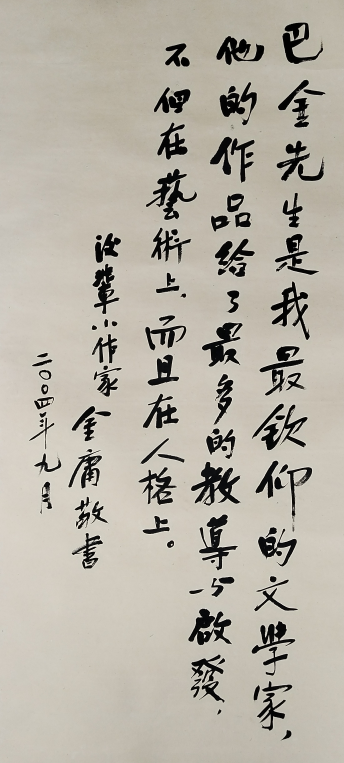 巴金先生是我最欽仰的文學家，
他的作品给了最多的教導与啟發，
不但在藝術上，而且在人格上。
後輩小作家 金庸敬書
二〇〇四年九月